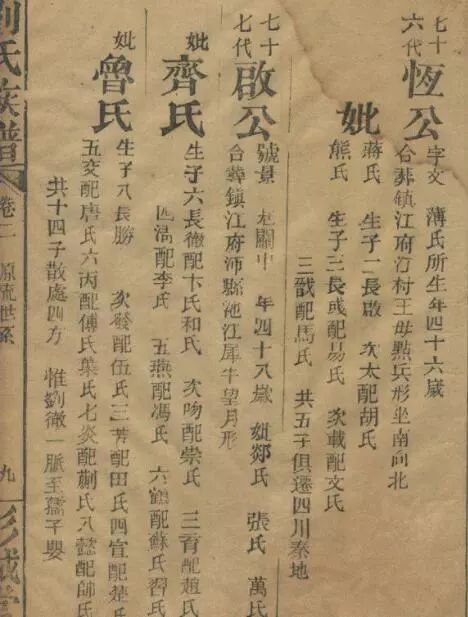 七十六代 恆公 字文 薄氏所生年四十六嵗
合葬鎮江府汀村王母點兵形坐南向北
妣 蔣氏 生子二長啟 次太配胡氏
熊氏 生子三長彧配易氏 次載配文氏
三戬配馬氏 共五子俱遷四川秦地
七十七代 啟公 號景 關中 年四十八嵗 妣鄒氏 張氏 萬氏
合葬鎮江府沛縣池江犀牛望月形
妣 齊氏 生子六長徹配卞氏和氏 次吻配崇氏 三育配趙氏
四滈配李氏 五燕配馮氏 六鶴配蘇氏習氏
妣 魯氏 生子八長勝 次發配伍氏三芳配田氏四宣配楚氏
五交配唐氏六丙配傅氏葉氏七炎配蒯氏八懿配師氏
共十四子散處四方 惟劉徹一脈至孺子嬰
劉氏族譜 卷二 源流世系 九 彭城堂